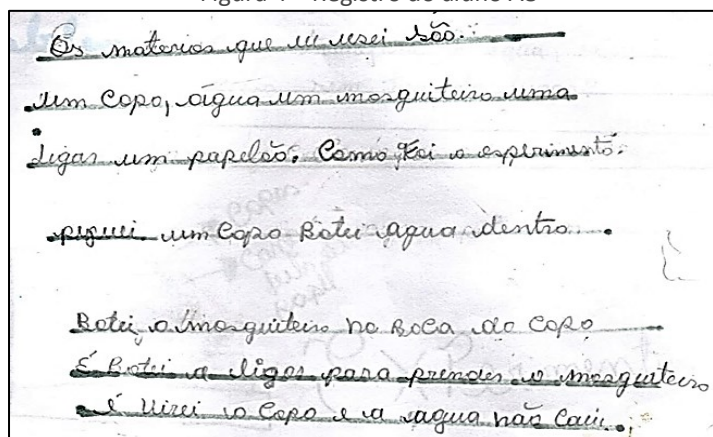 Os materios que eu usei são:
um copo, água um mosquiteiro uma
ligar um papelão. Como Foi o esperimento.
peguei um copo Botei agua dentro.
Botei o mosquiteiro no Boca do copo
É Botei a ligar para prender o mosquiteiro
É Virei o copo e a agua não caiu.